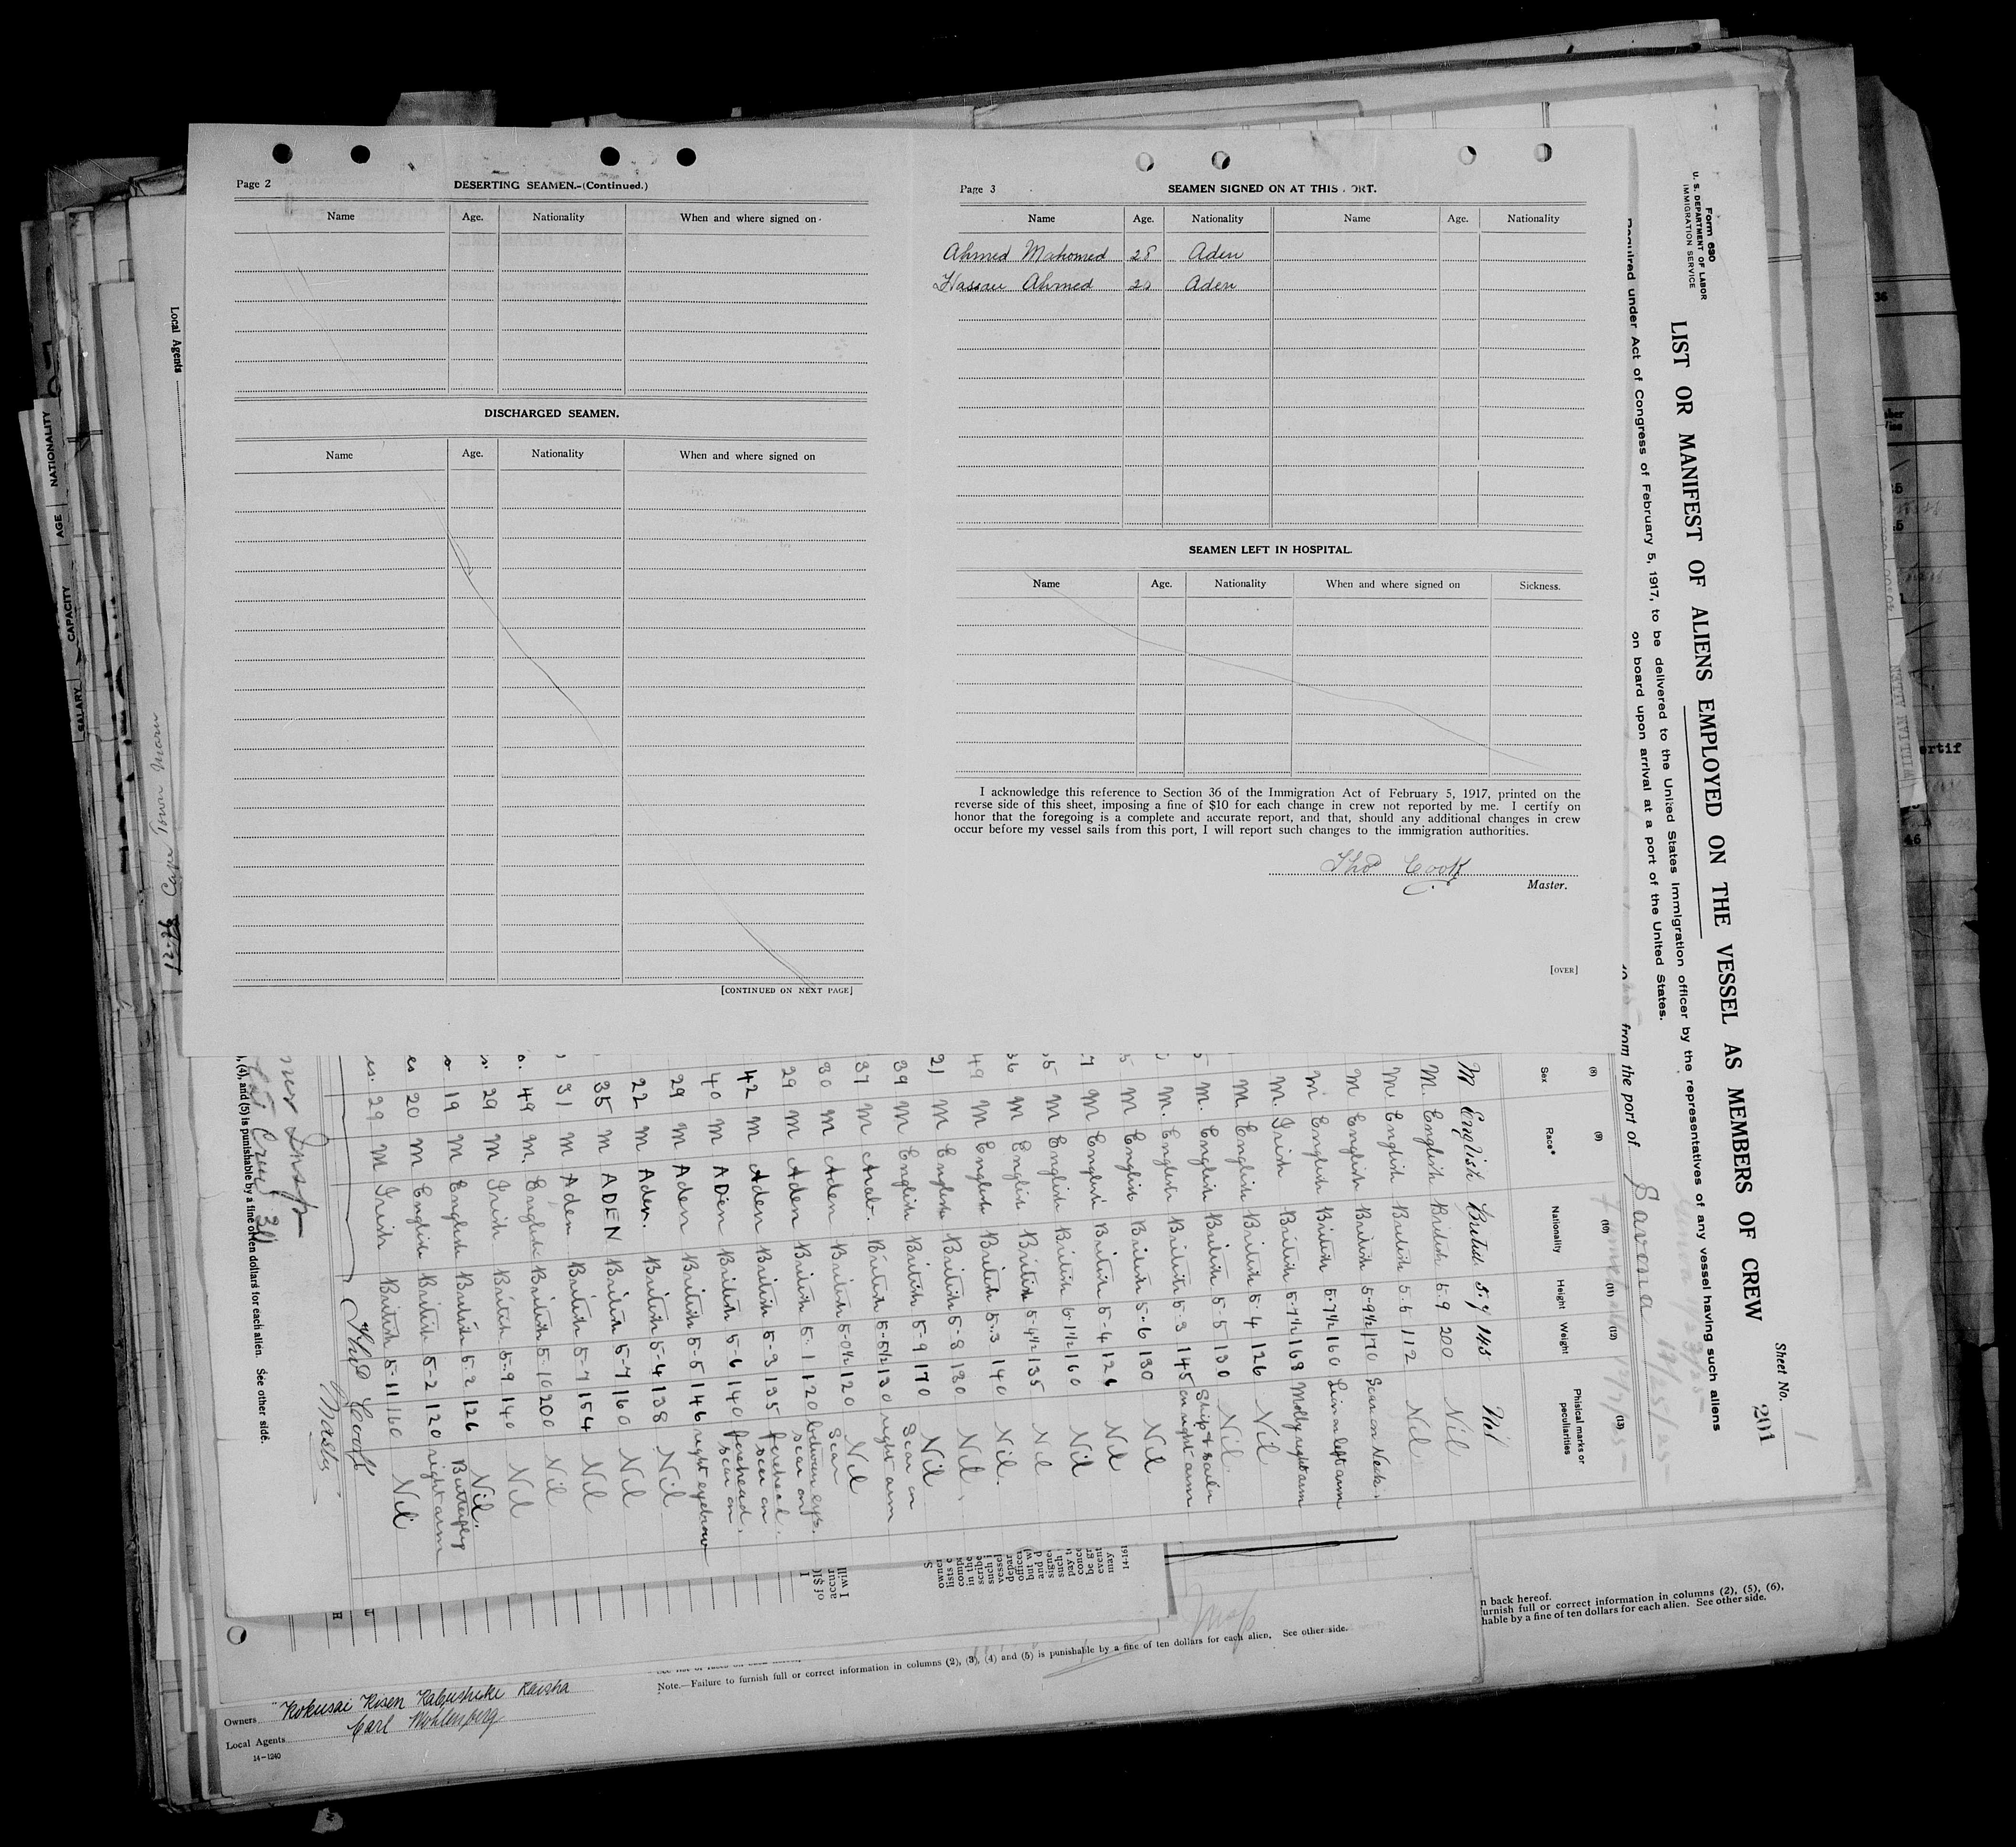 Page 2
DESERTING SEAMEN.-(Continued.)
Name Age. Nationality When and where signed on
DISCHARGED SEAMEN.
Name Age. Nationality When and where signed on
[CONTINUED ON NEXT PAGE]
Page 3
SEAMEN SIGNED ON AT THIS ORT.
Name Age. Nationality Name Age. Nationality
Ahmed Mahomed 28 Aden
Hassan Ahmed Aden
SEAMEN LEFT IN HOSPITAL.
Name Age. Nationality When and where signed on Sickness.
I acknowledge this reference to Section 36 of the Immigration Act of February 5, 1917, printed on the
reverse side of this sheet, imposing a fine of $10 for each change in crew not reported by me. I certify on
honor that the foregoing is a complete and accurate report, and that, should any additional changes in crew
occur before my vessel sails from this port, I will report such changes to the immigration authorities.
Thos Cook
Master.
[OVER]
Form 680
U. S. DEPARTMENT OF LABOR
IMMIGRATION SERVICE
Sheet No. 1
201
LIST OR MANIFEST OF ALIENS EMPLOYED ON THE VESSEL AS MEMBERS OF CREW
Required under Act of Congress of February 5, 1917, to be delivered to the United States Immigration officer by the representatives of any vessel having such aliens
on board upon arrival at a port of the United States.
from the port of Savona
(8) (9) (10) (11) (12) (13)
Sex Race* Nationality Height Weight Phisical marks or peculiarities
M English British 5.7 145 Nil
M. English British 5.9 200 Nil
M English British 5.6 112 Nil
M English British 5-9½ 170 Scar on Neck.
M English British 5.7½ 160 Lion on left arm
M. Irish British 5-7½ 168 Molly right arm
M. English British 5.4 126 Nil
M. English British 5-5 130 Nil.
M. English British 5-3 145 Ship & Sailor on right arm
M English British 5-6 130 Nil
M English British 5-4 126 Nil
M English British 5.1½ 160 Nil
M English British 5-4½ 135 Nil
49 M English British 5.3 140 Nil.
21 M English British 5-8 130 Nil.
39 M English British 5-9 170 Nil
37 M Arab. British 5-5½ 130 Scar on right arm
30 M Aden British 5-0½ 120 Nil
29 M Aden British 5.1 120 Scar between eyes.
42 M Aden British 5-3 135 scar on forehead.
40 M ADen British 5-6 140 scar on forehead.
29 M Aden British 5-5 146 scar on right eyebrow
22 M Aden. British 5-4 138 Nil.
35 M ADEN British 5-7 160 Nil
31 M Aden British 5-7 154 Nil
49 M. English British 5.10 200 Nil
29 M Irish British 5-9 140 Nil
19 M English British 5.2 126 Nil.
20 M English British 5-2 120 Butterfly right arm
29 M Irish British 5-11 160 Nil
Thos Cook
Master
Crew 31
(4), and (5) is punishable by a fine of ten dollars for each alien. See other side.
Local Agents
Cape Town Maru
NATIONALITY
AGE
CAPACITY
SALARY
n back hereof.
furnish full or correct information in columns (2), (5), (6),
hable by a fine of ten dollars for each alien. See other side.
Note.—Failure to furnish full or correct information in columns (2), (3), (4) and (5) is punishable by a fine of ten dollars for each alien. See other side.
Owners "Kokusai Kisen Kabushiki Kaisha
Local Agents Carl Wohlenberg
14-1240